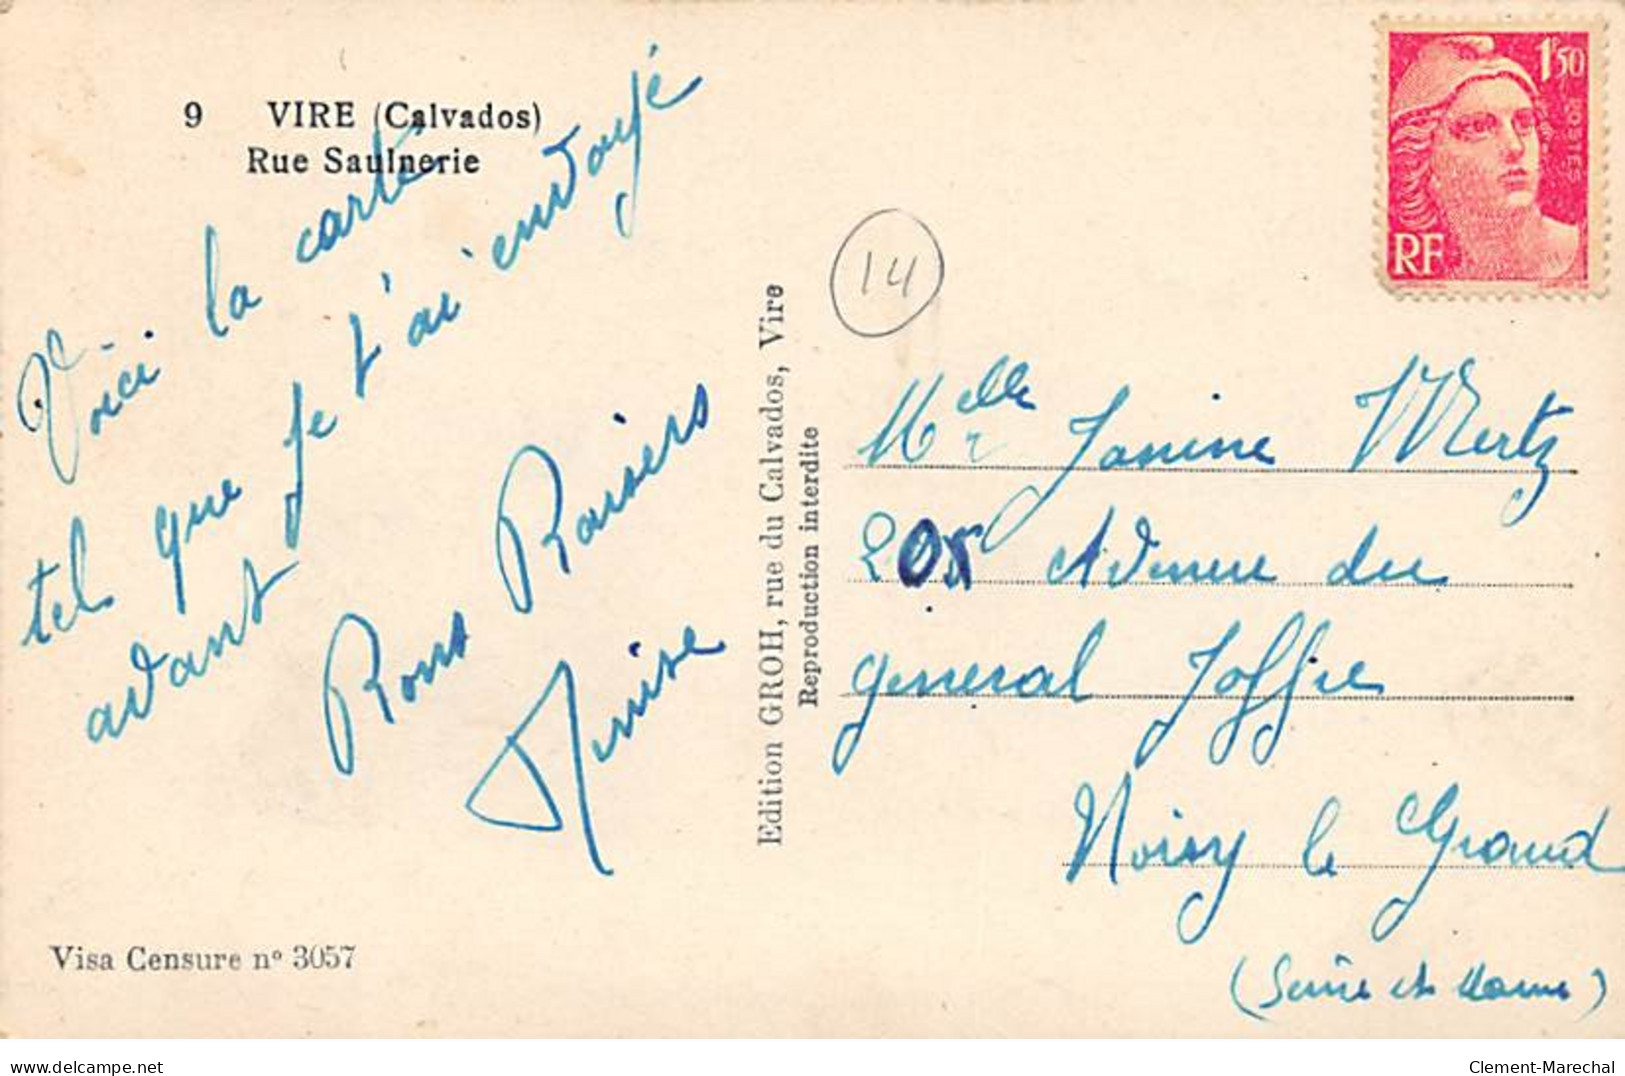 9 VIRE (Calvados)
Rue Saulnerie
Voici la carte
tel que je t'ai envoyé
avant
Bons Baisers
Denise
Visa Censure nº 3057
Edition GROH, rue du Calvados, Vire
Reproduction interdite
14
1F50
POSTES
RF
Melle Janine Mertz
205 Avenue du
general Joffre
Noisy le Grand
(Seine et Marne)
delcampe.net
Clement-Marechal